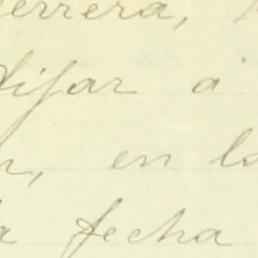 errera,
ifar á
en la
fecha